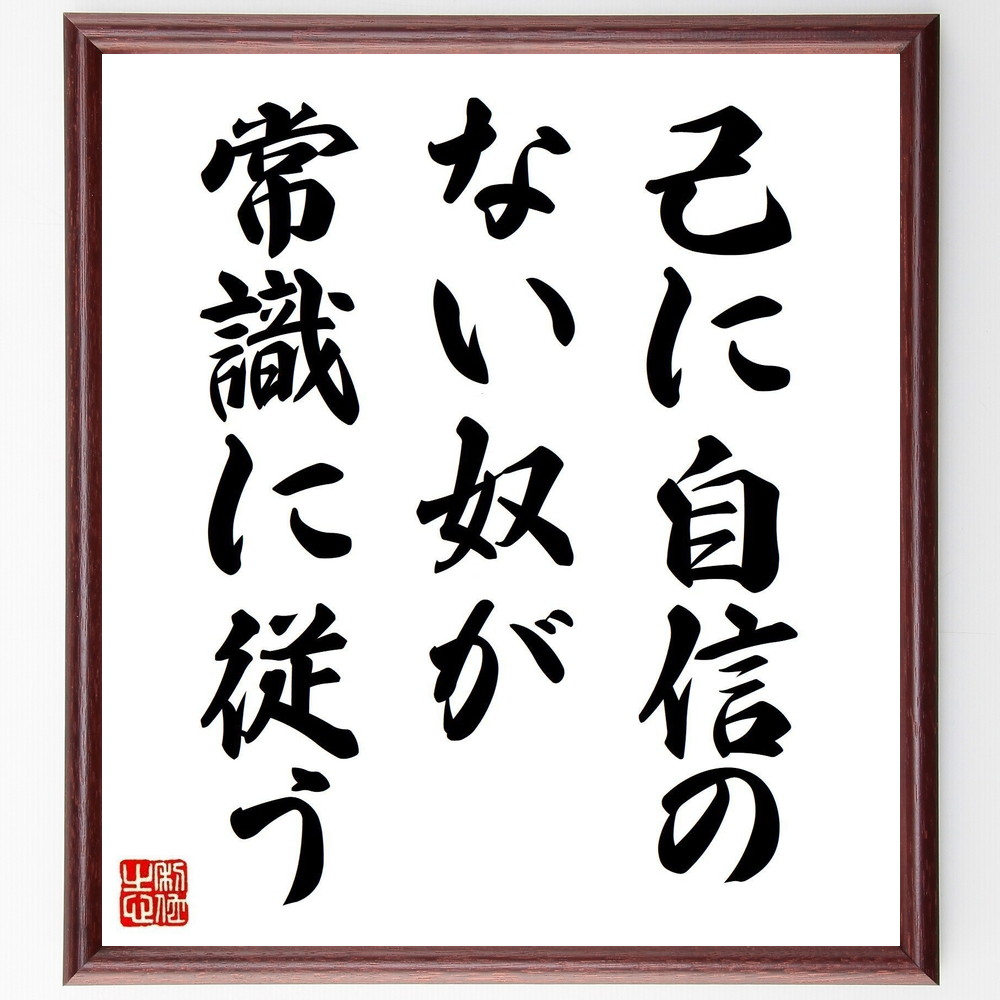 己に自信の
ない奴が
常識に従う